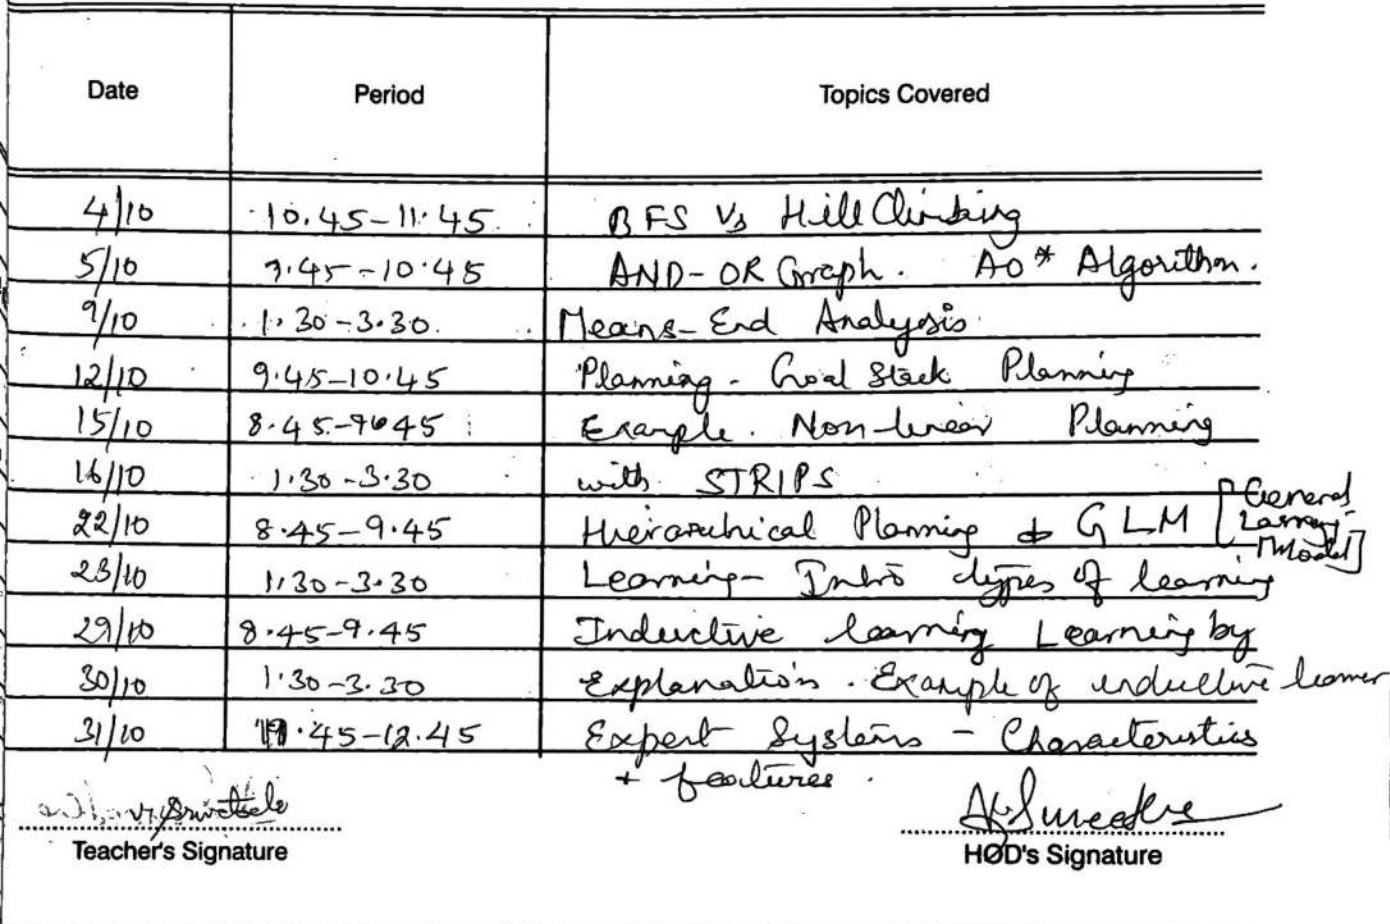 Date Period Topics Covered
4/10 10.45-11.45 BFS Vs Hill Climbing
5/10 9.45-10.45 AND-OR Graph. AO* Algorithm.
9/10 1.30-3.30 Means-End Analysis
12/10 9.45-10.45 Planning - Goal Stack Planning
15/10 8.45-9.45 Example. Non-linear Planning
16/10 1.30-3.30 with STRIPS
22/10 8.45-9.45 Hierarchical Planning & GLM [General
Learning
Model]
23/10 1.30-3.30 Learning- Intro types of learning
29/10 8.45-9.45 Inductive learning Learning by
30/10 1.30-3.30 Explanation. Example of inductive learner
31/10 11.45-12.45 Expert Systems - Characteristics
+ features.
Teacher's Signature HOD's Signature